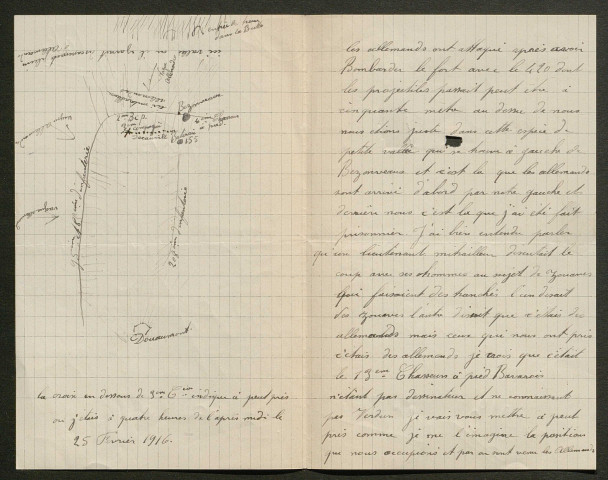 Bezonvaux
2e BCP
155
95 em d'infanterie
208 em d'infanterie
Douaumont
la croix en dessous de 3em Cie indique à peut près
ou j'étais à quatre heures de l'après midi le
25 Février 1916.
les allemands ont attaqué après avoir
Bombarder le fort avec le 420 dont
les projectiles passait peut etre à
cinquante metre au dessu de nous
nous étions juste dans cette espèce de
petite vallée qui se trouve à gauche de
Bezonvaux et c'est la que les allemands
sont arrivé d'abord par notre gauche et
derrière nous c'est la que j'ai été fait
prisonnier J'ai bien entendu parler
qu'un lieutenant mitrailleur discutait le
coup avec ses hommes au sujet de zouaves
qui faisaient des tranchés l'un disait
des zouaves l'autre disait que c'était des
allemands mais ceux qui nous ont pris
c'étais des allemands je crois que c'était
le 13em Chasseurs à pied Bavarois
n'étant pas dessinateur et ne connaissant
pas Verdun je vais vous mettre à peut
près comme je me l'imagine la position
qui nous occupions et par ou sont venu les Allemands